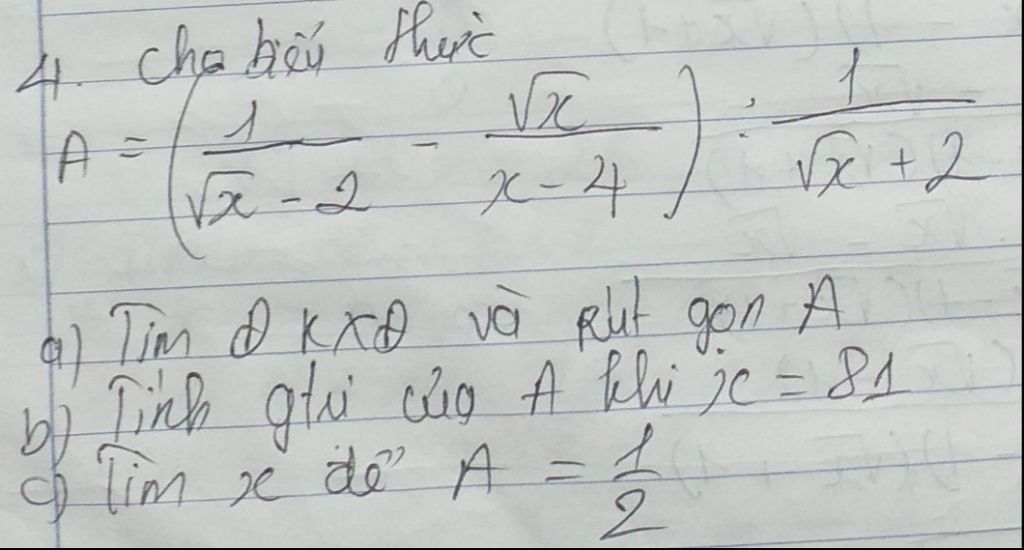 4. Cho biểu thức
A = ( 1/(√x - 2) - √x/(x - 4) ) : 1/(√x + 2)
a) Tìm ĐKXĐ và rút gọn A
b) Tính gtrị của A khi x = 81
c) Tìm x để A = 1/2